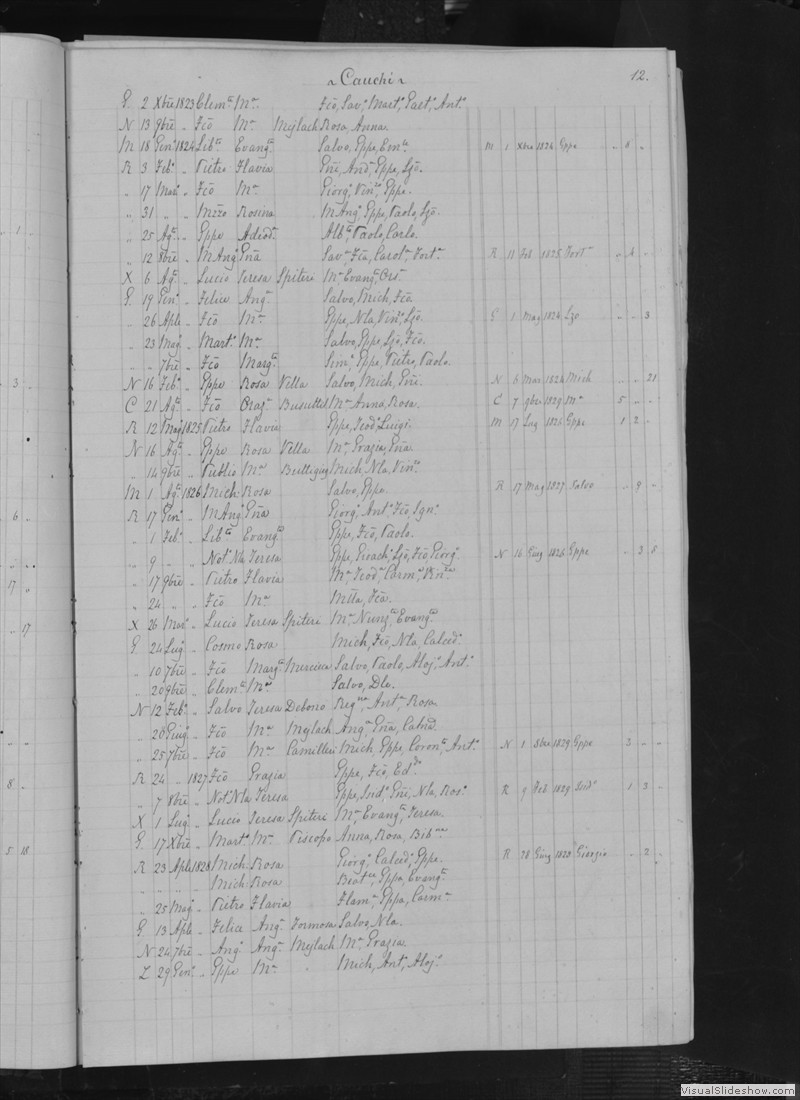 ~ Cauchi ~ 12.
G. 2 Xbre 1823 Clemte Ma Fcõ, Savo, Marto, Gaeto, Anto
N 13 9bre " Fcõ Ma Mejlach Rosa, Anna.
M 18 Geno 1824 Liba Evanga Salvo, Gppe, Ema M 1 Xbre 1824 Gppe " 6 "
R 3 Febo " Pietro Flavia Gñe, Ando, Gppe, Lzõ.
" 17 Maro " Fcõ Ma Giorgo, Vinzo, Gppe.
" 31 " " Rosina M Ango, Gppe, Paolo, Lzõ.
" 25 Ago " Gppe Adeoda Alba, Paolo, Carlo.
" 12 8bre " M Ango Gña Sava, Fcã, Carola, Forta R 11 Feb 1825 Forta " 4 "
X 6 Ago " Lucio Teresa Spiteri Ma Evanga, Orsa
G. 19 Geno " Felice Anga Salvo, Mich, Fcã
" 26 Aple " Fcõ Ma Gppe, Nla, Vinzo, Lzõ. G 1 Mag 1824 Lzo " " 3
" 23 Mago " Marto Ma Salvo, Gppe, Lzõ, Fcõ.
" " 7bre " Fcõ Marga Simo, Gppe, Pietro, Paolo.
N 16 Febo " Gppe Rosa Vella Salvo, Mich, Gñe. N 6 Mar 1824 Mich " " 21
C 21 Ago " Fcõ Busuttil Ma Anna, Rosa. C 7 1829 Ma 5 " "
R 12 Mago 1825 Pietro Flavia Gppe, Teodo, Luigi. M 17 Lug 1826 Gppe 1 2 "
N 16 Ago " Gppe Rosa Vella Ma, Grazia, Gña
" 14 9bre " Publio Ma Mich, Nla, Vinzo
M 1 Ago 1826 Mich: Rosa Salvo, Gppe R 17 Mag 1827 Salvo " 9 "
R 17 Geno " M Ango Gña Giorgo, Anto, Fcõ, Igno
" 1 Febo " Liba Evanga Gppe, Fcõ, Paolo.
" 9 " " Noto Nla Teresa Gppe, Gioacho, Lzõ, Fcõ, Giorgo N 16 Giug 1826 Gppe " 3 8
" 17 9bre " Pietro Flavia Ma, Teoda, Carma, Vinza
" 24 " " Fcõ Ma Mtta, Fcã.
X 26 Maro " Lucio Teresa Spiteri Ma, Nunza, Evanga
G. 24 Lugo " Cosmo Rosa Mich, Fcõ, Nla, Calcedo
" 10 7bre " Fcõ Marga Mercieca Salvo, Paolo, Alojo, Anto
" 20 9bre " Clemte Ma Salvo, Dlo.
N 12 Febo " Salvo Teresa Debono Regna, Anta, Rosa.
" 20 Giugo " Fcõ Ma Mejlach Anga, Gña, Catnã.
" 25 7bre " Fcõ Ma Camilleri Mich, Gppe, Corono, Anto N 1 8bre 1829 Gppe 3 " "
R 24 " 1827 Fcõ Grazia Gppe, Fcõ, Edo
" 7 8bre " Noto Nla Teresa Gppe, Isido, Gñe, Nla, Roso R 9 Feb 1829 Isido 1 3 "
X 1 Lugo " Lucio Teresa Spiteri Ma, Evanga, Teresa.
G. 17 Xbre " Marto Ma Piscopo Anna, Rosa, Bibna
R 23 Aple 1828 Mich: Rosa Giorgo, Calcedo, Gppe. R 28 Giug 1828 Giorgio " 2 "
" " " " Mich: Rosa Beatce, Gppa, Evanga
" 25 Mago " Pietro Flavia Flama, Gppa, Carma
G. 13 Aple " Felice Anga Formosa Salvo, Nla.
N 24 7bre " Ango Anga Mejlach Ma, Grazia
Z 29 Geno " Gppe Ma Mich, Anto, Alojo
VisualSlideshow.com